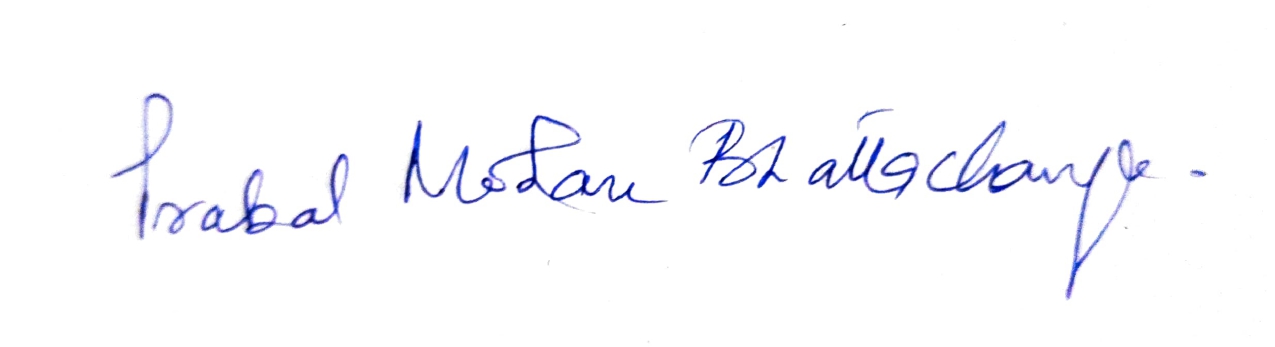 Prabal Mohan Bhattacharya.